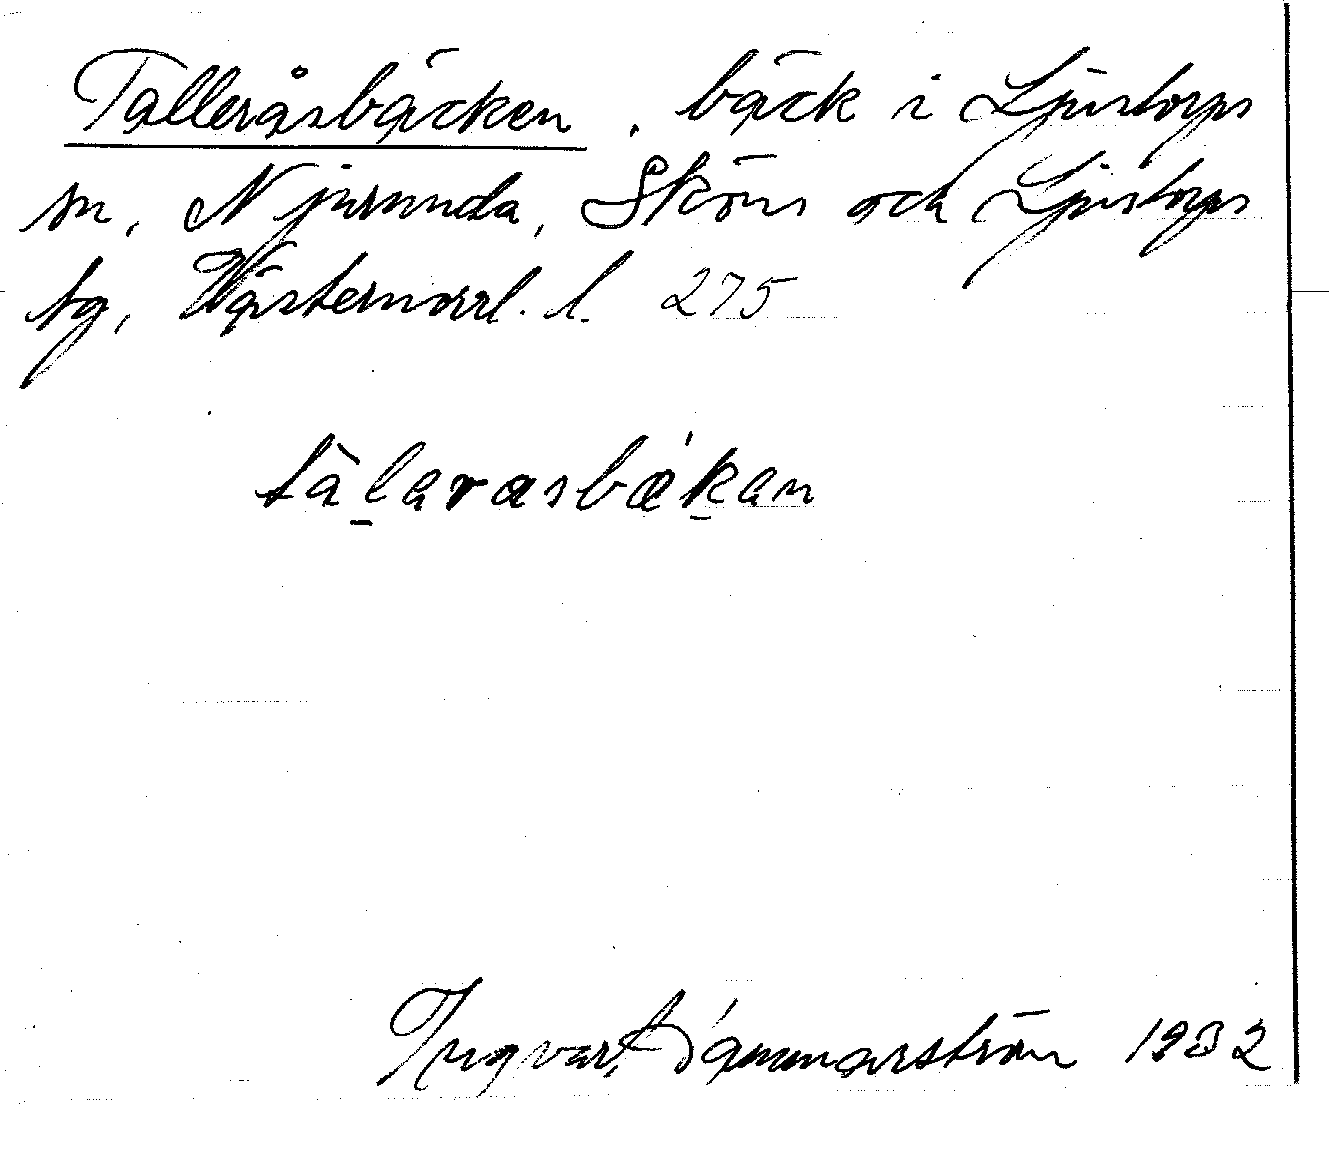 Talleråsbäcken, bäck i Ljustorps
sn, Njurunda, Sköns och Ljustorps
tg, Västernorrl. l. 275
tàlarasbǽkan
Ingvar Hammarström 1932